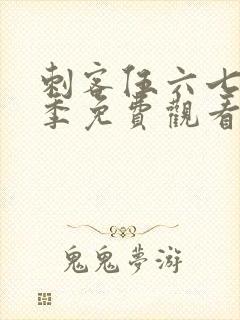 刺客伍六七
季免費觀看
鬼鬼夢游